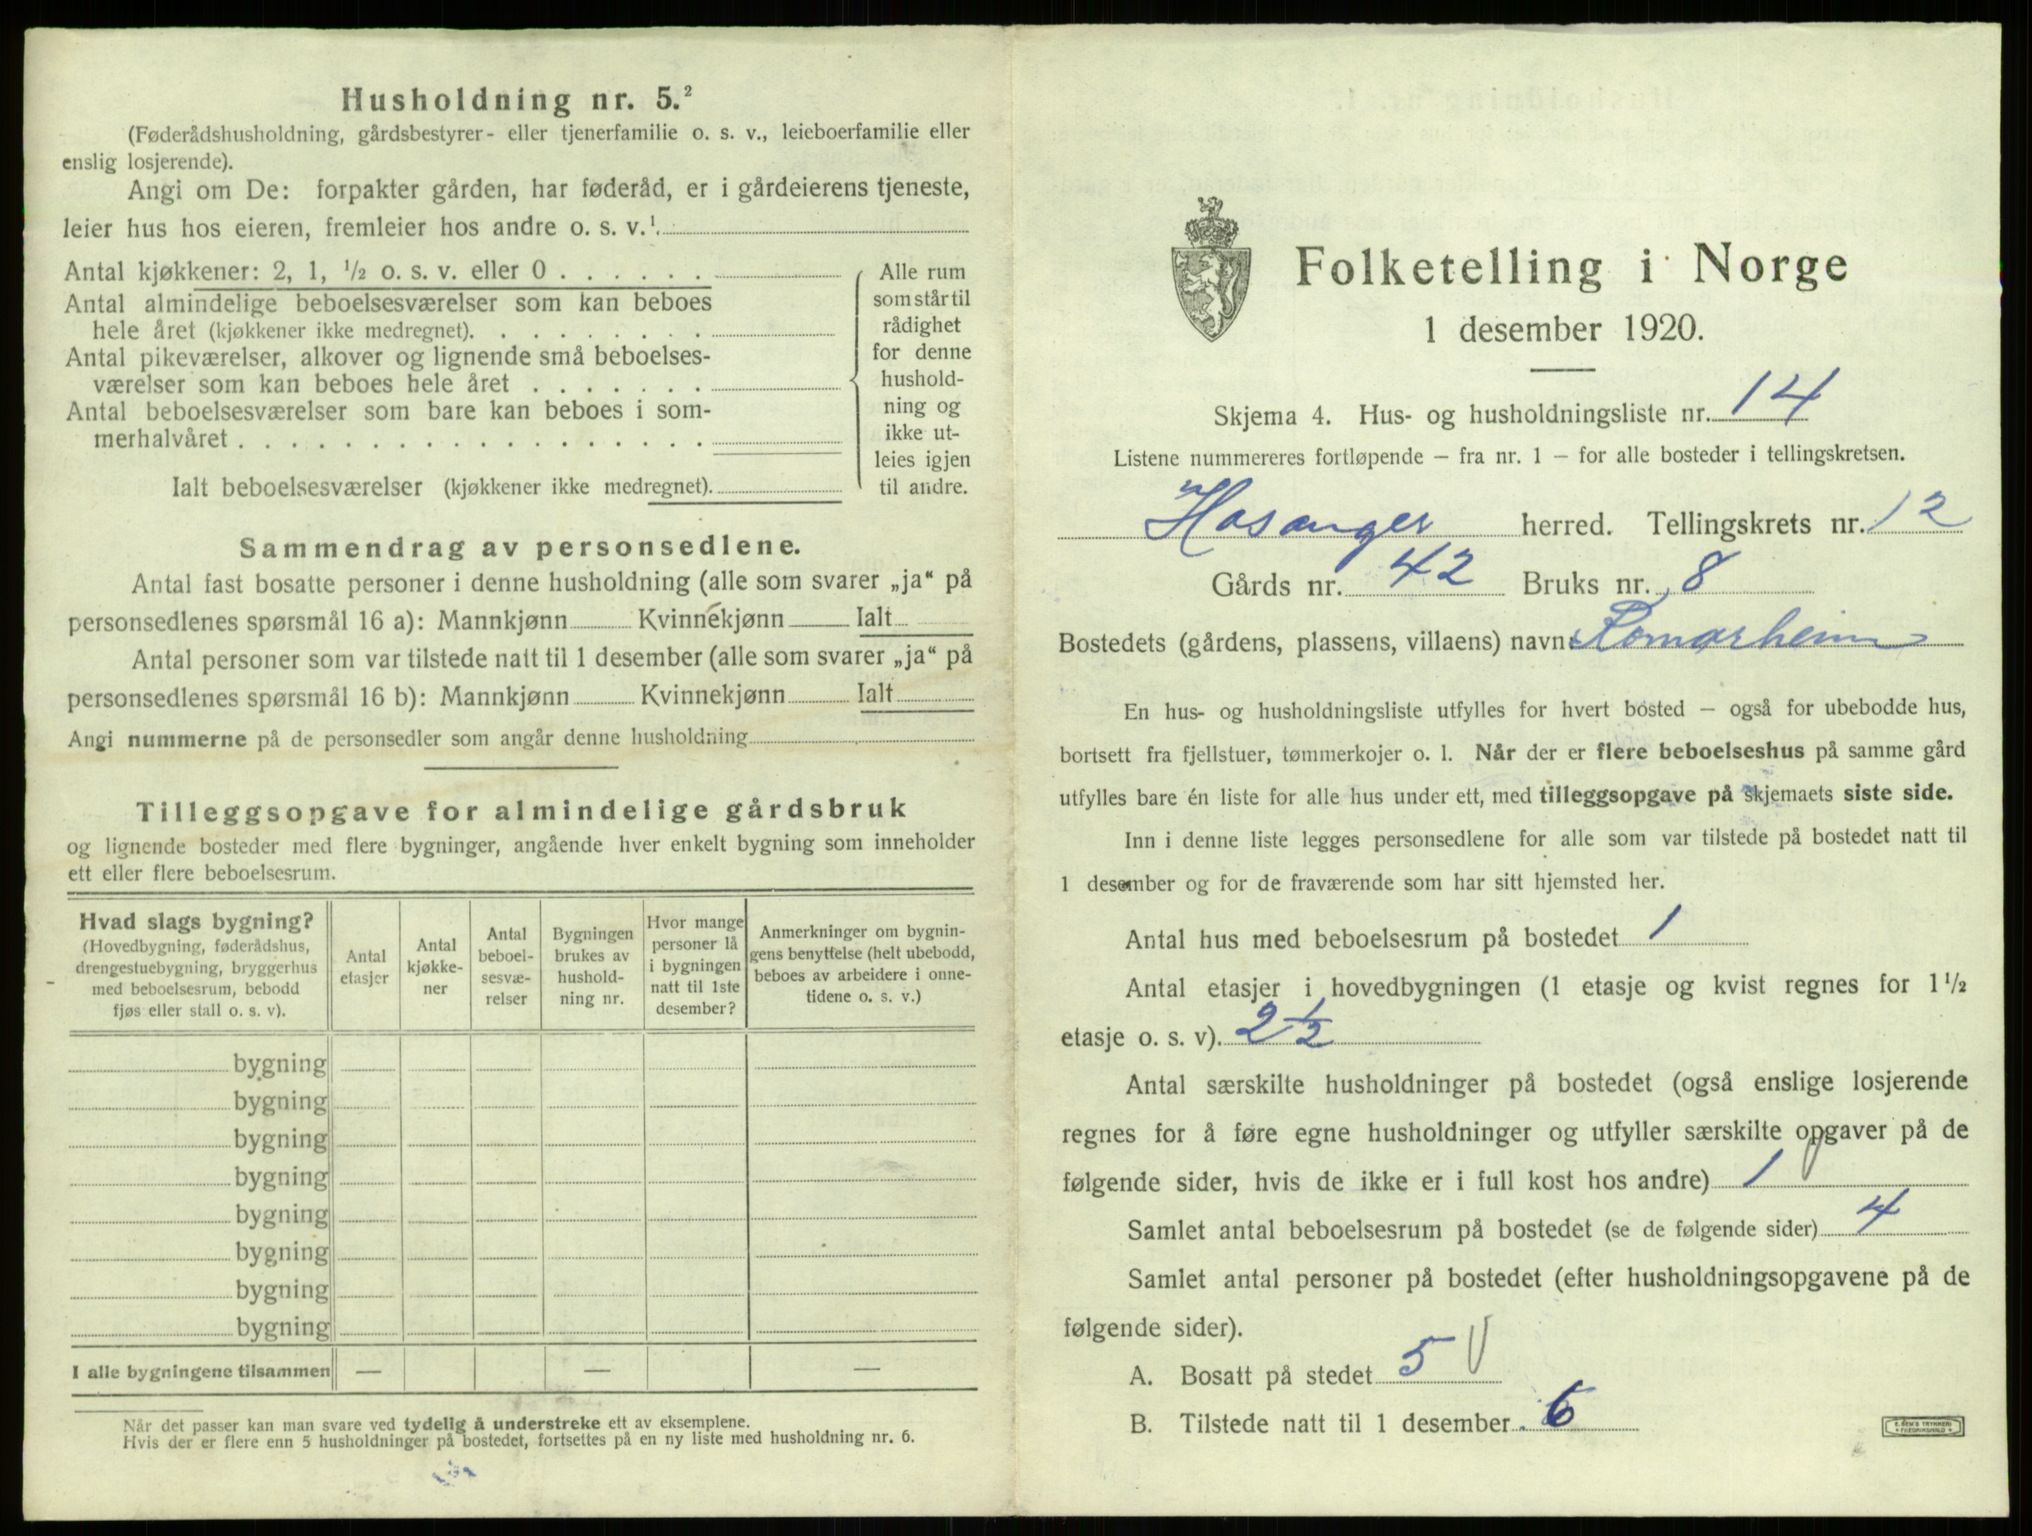 Husholdning nr. 5.²
(Føderådshusholdning, gårdsbestyrer- eller tjenerfamilie o. s. v., leieboerfamilie eller
enslig losjerende).
Angi om De: forpakter gården, har føderåd, er i gårdeierens tjeneste,
leier hus hos eieren, fremleier hos andre o. s. v.¹
Antal kjøkkener: 2, 1, ½ o. s. v. eller 0
Antal almindelige beboelsesværelser som kan beboes
hele året (kjøkkener ikke medregnet).
Antal pikeværelser, alkover og lignende små beboelses-
værelser som kan beboes hele året
Antal beboelsesværelser som bare kan beboes i som-
merhalvåret
Ialt beboelsesværelser (kjøkkener ikke medregnet).
Alle rum
som står til
rådighet
for denne
hushold-
ning og
ikke ut-
leies igjen
til andre.
Sammendrag av personsedlene.
Antal fast bosatte personer i denne husholdning (alle som svarer „ja“ på
personsedlenes spørsmål 16 a): Mannkjønn Kvinnekjønn Ialt
Antal personer som var tilstede natt til 1 desember (alle som svarer „ja“ på
personsedlenes spørsmål 16 b): Mannkjønn Kvinnekjønn Ialt
Angi nummerne på de personsedler som angår denne husholdning
Tilleggsopgave for almindelige gårdsbruk
og lignende bosteder med flere bygninger, angående hver enkelt bygning som inneholder
ett eller flere beboelsesrum.
Hvad slags bygning?
(Hovedbygning, føderådshus,
drengestuebygning, bryggerhus
med beboelsesrum, bebodd
fjøs eller stall o. s. v).
Antal
etasjer
Antal
kjøkke-
ner
Antal
beboel-
sesvæ-
relser
Bygningen
brukes av
hushold-
ning nr.
Hvor mange
personer lå
i bygningen
natt til 1ste
desember?
Anmerkninger om bygnin-
gens benyttelse (helt ubebodd,
beboes av arbeidere i onne-
tidene o. s. v.)
bygning
bygning
bygning
bygning
bygning
bygning
bygning
bygning
I alle bygningene tilsammen — — —
Når det passer kan man svare ved tydelig å understreke ett av eksemplene.
Hvis der er flere enn 5 husholdninger på bostedet, fortsettes på en ny liste med husholdning nr. 6.
Folketelling i Norge
1 desember 1920.
Skjema 4. Hus- og husholdningsliste nr. 14
Listene nummereres fortløpende – fra nr. 1 – for alle bosteder i tellingskretsen.
Hosanger herred. Tellingskrets nr. 12
Gårds nr. 42 Bruks nr. 8
Bostedets (gårdens, plassens, villaens) navn Romarheim
En hus- og husholdningsliste utfylles for hvert bosted – også for ubebodde hus,
bortsett fra fjellstuer, tømmerkojer o. l. Når der er flere beboelseshus på samme gård
utfylles bare én liste for alle hus under ett, med tilleggsopgave på skjemaets siste side.
Inn i denne liste legges personsedlene for alle som var tilstede på bostedet natt til
1 desember og for de fraværende som har sitt hjemsted her.
Antal hus med beboelsesrum på bostedet 1
Antal etasjer i hovedbygningen (1 etasje og kvist regnes for 1 ½
etasje o. s. v). 2 ½
Antal særskilte husholdninger på bostedet (også enslige losjerende
regnes for å føre egne husholdninger og utfyller særskilte opgaver på de
følgende sider, hvis de ikke er i full kost hos andre) 1
Samlet antal beboelsesrum på bostedet (se de følgende sider) 4
Samlet antal personer på bostedet (efter husholdningsopgavene på de
følgende sider).
A. Bosatt på stedet 5
B. Tilstede natt til 1 desember 6